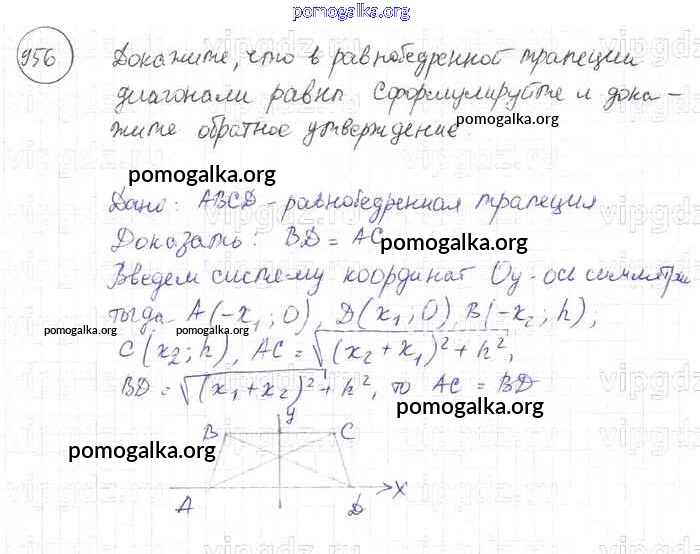 pomogalka.org
956 Докажите, что в равнобедренной трапеции
диагонали равны. Сформулируйте и дока-
жите обратное утверждение.
pomogalka.org
pomogalka.org
Дано: ABCD - равнобедренная трапеция
Доказать: BD = AC
pomogalka.org
Введем систему координат Oy - ось симметрии
тогда A(-x₁; 0), D(x₁; 0) B(-x₂; h),
pomogalka.org pomogalka.org pomogalka.org
C(x₂; h), AC = √(x₂ + x₁)² + h²,
BD = √(x₁ + x₂)² + h², то AC = BD
pomogalka.org
y
B C
pomogalka.org
A D x
vipgdz.ru